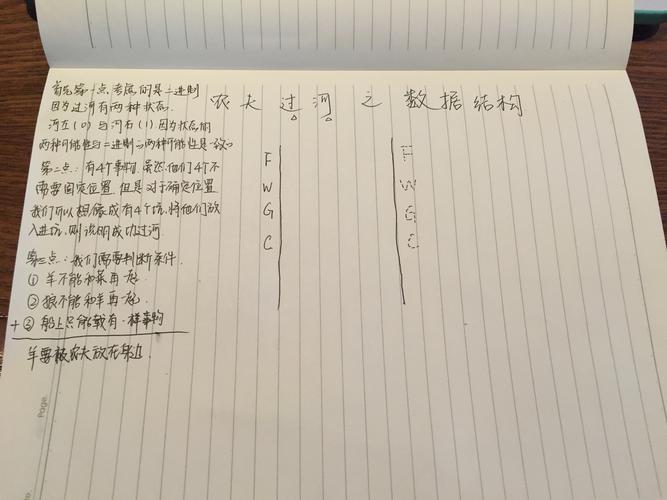 农夫过河之数据结构
首先第一点考虑的是二进制
因为过河有两种状态.
河左(0)与河右(1)因为状态的
两种可能性与二进制的两种可能性是一致的
第二点:有4个事物.虽然他们4个不
需要固定位置.但是对于确定位置
我们可以想像成有4个坑,将他们放
入进坑,则说明成功过河.
第三点:我们需要判断条件.
① 羊不能和菜再一起.
② 狼不能和羊再一起.
+③ 船上只能载有一样事物
羊要被农夫放在某边.
F
W
G
C
F
W
G
C
Page.